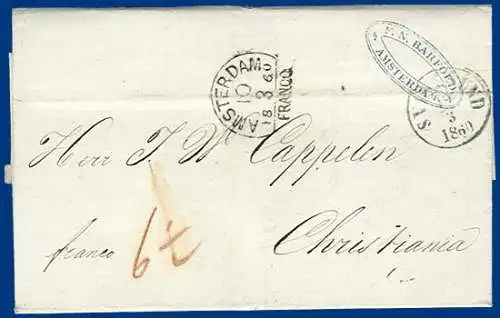 AMSTERDAM
10
18 3 60
FRANCO
AMSTERDAM
3
1860
Herr J. W. Cappelen
franco
Christiania